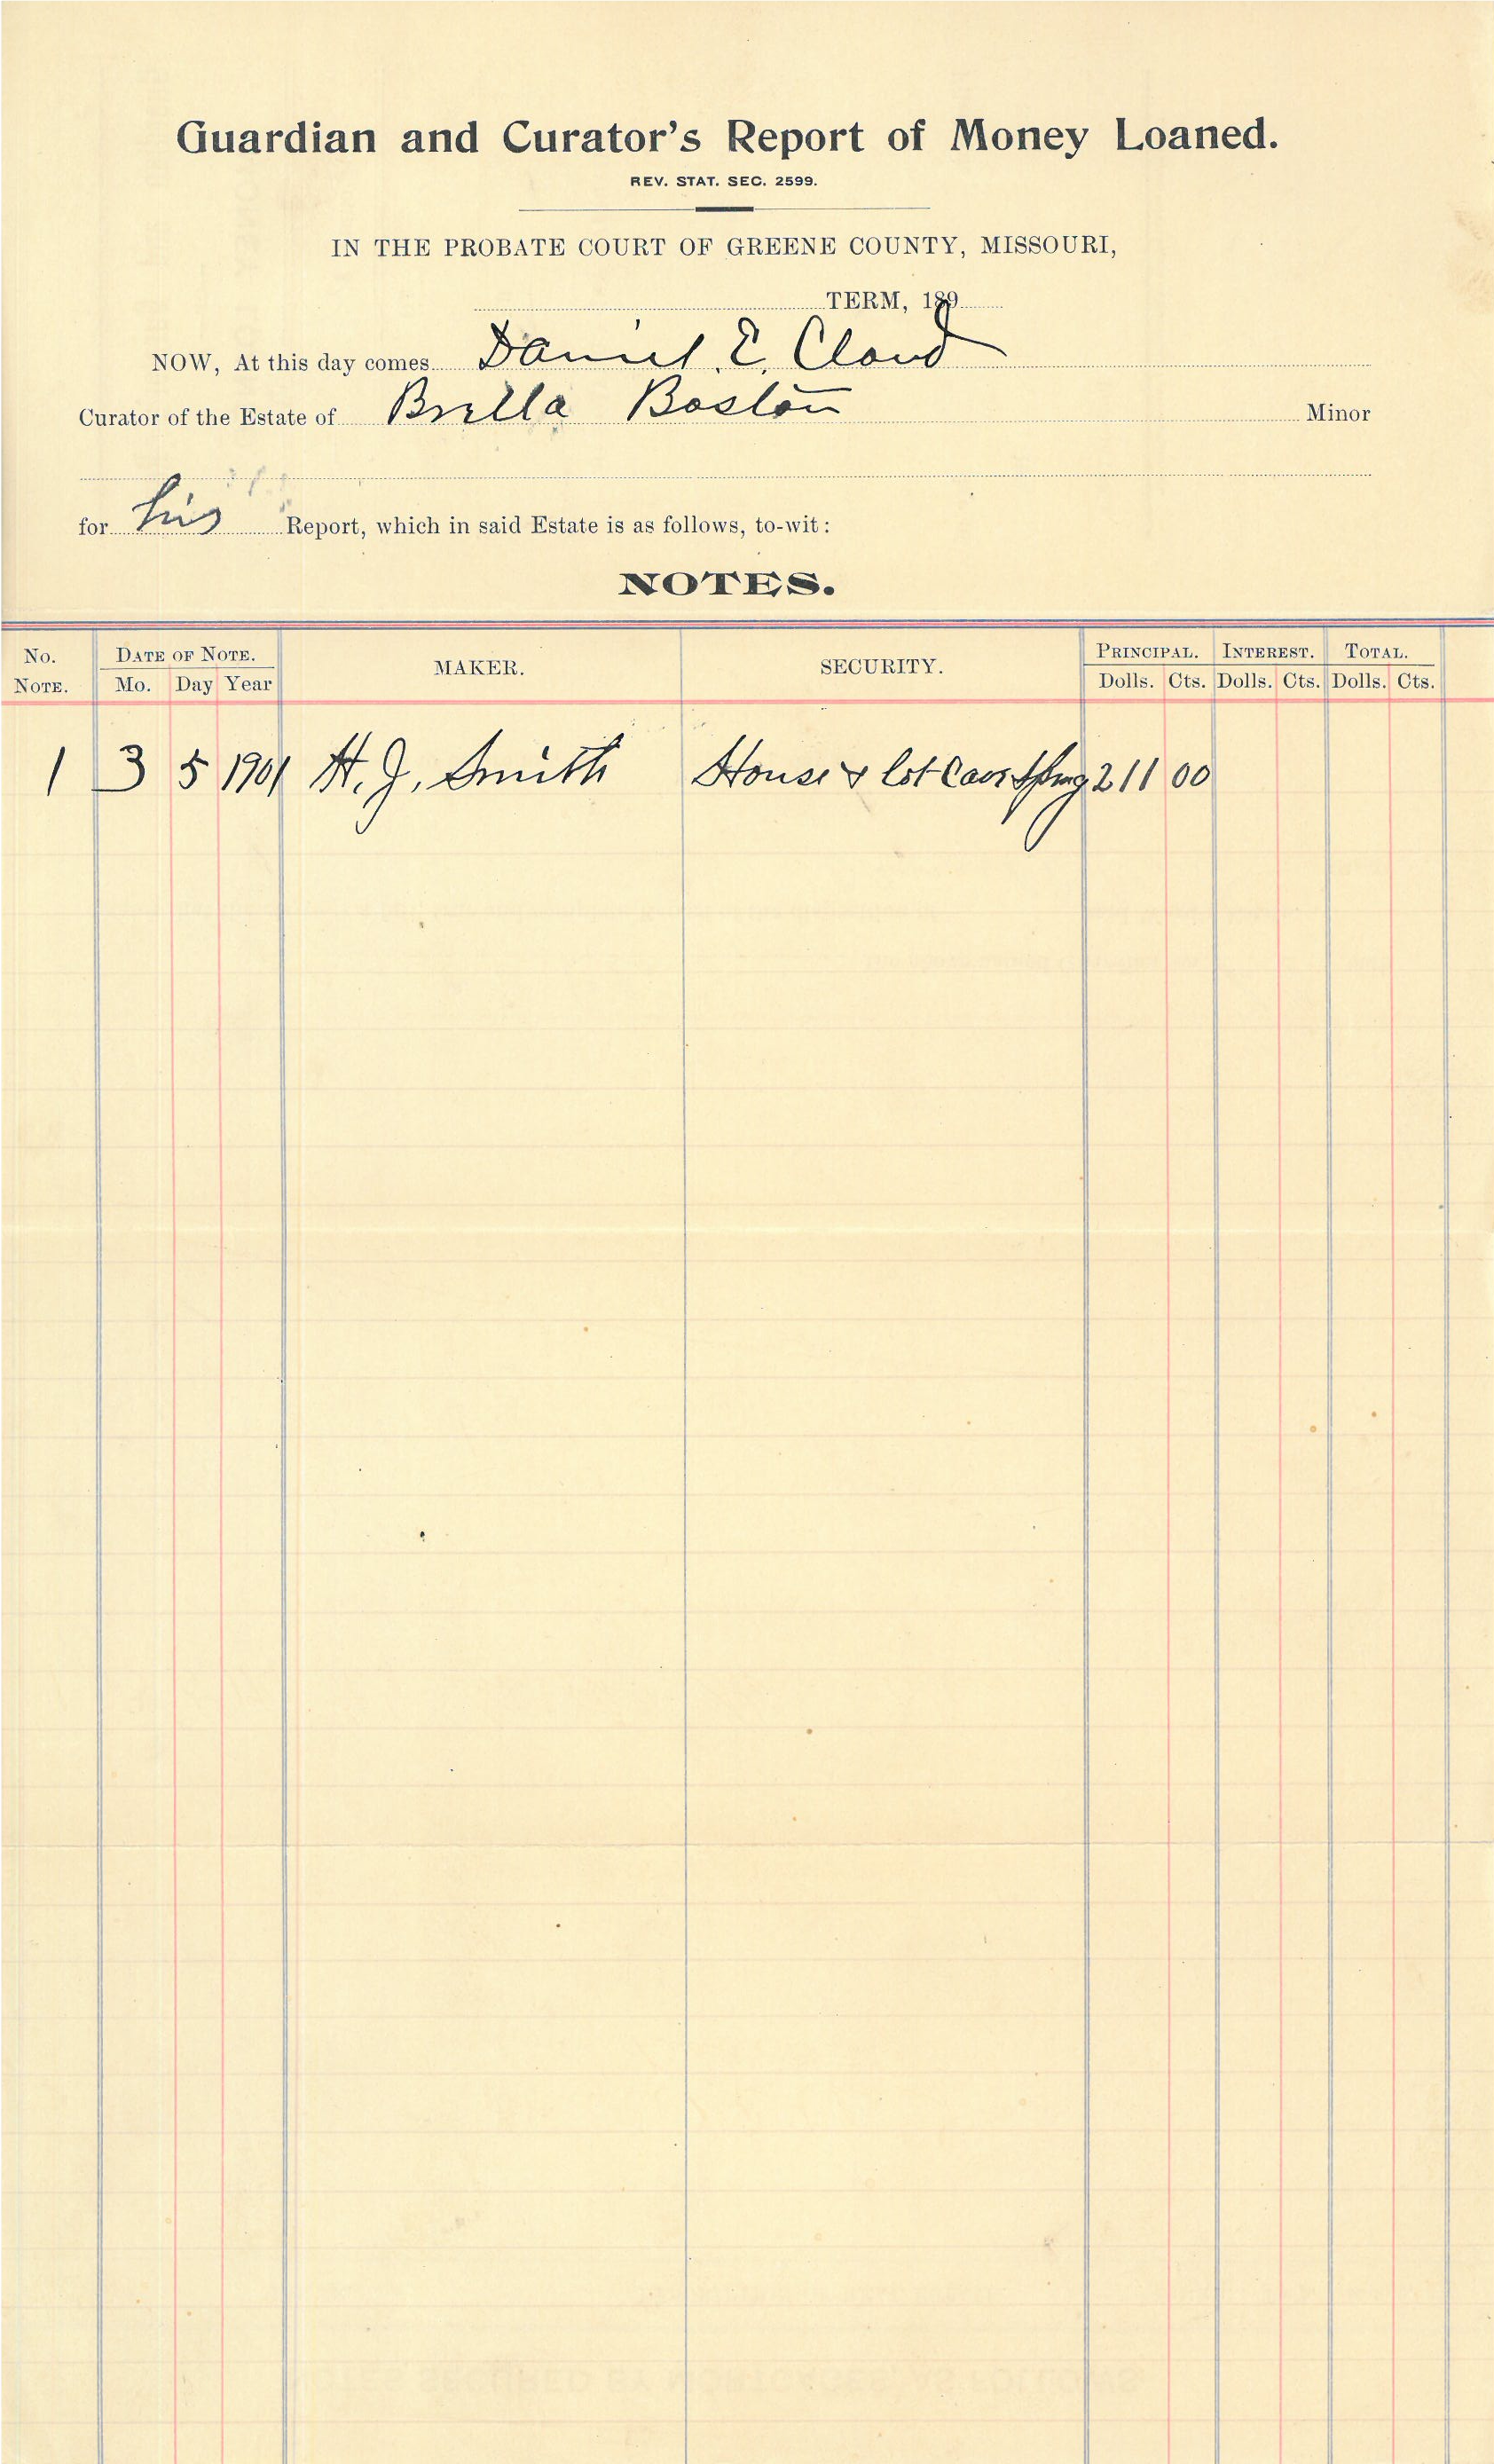 Guardian and Curator's Report of Money Loaned.
REV. STAT. SEC. 2599.
IN THE PROBATE COURT OF GREENE COUNTY, MISSOURI,
TERM, 189
NOW, At this day comes Daniel E. Cloud
Curator of the Estate of Boston Minor
for his Report, which in said Estate is as follows, to-wit:
NOTES.
No. NOTE. DATE OF NOTE. Mo. Day Year MAKER. SECURITY. PRINCIPAL. Dolls. Cts. INTEREST. Dolls. Cts. TOTAL. Dolls. Cts.
1 3 5 1901 H. J. Smith House & lot Cave Spring 211 00